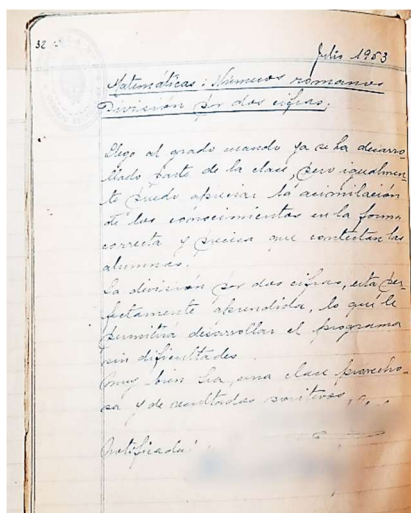 32
Julio 1953
Matemáticas: Números romanos
División por dos cifras.
Llego al grado cuando ya se ha desarro-
llado parte de la clase, pero igualmen-
te puedo apreciar la asimilación
de los conocimientos en la forma
correcta y precisa que contestan las
alumnas.
La división por dos cifras, está per-
fectamente aprendida, lo que le
permitirá desarrollar el programa
sin dificultades.
Muy bien Sra, una clase provecho-
sa y de resultados positivos.
Notificada: